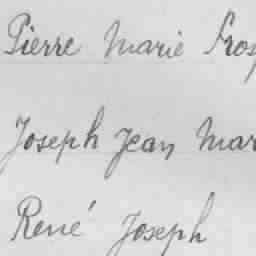 Pierre Marie Prosp
Joseph Jean Mar
René Joseph